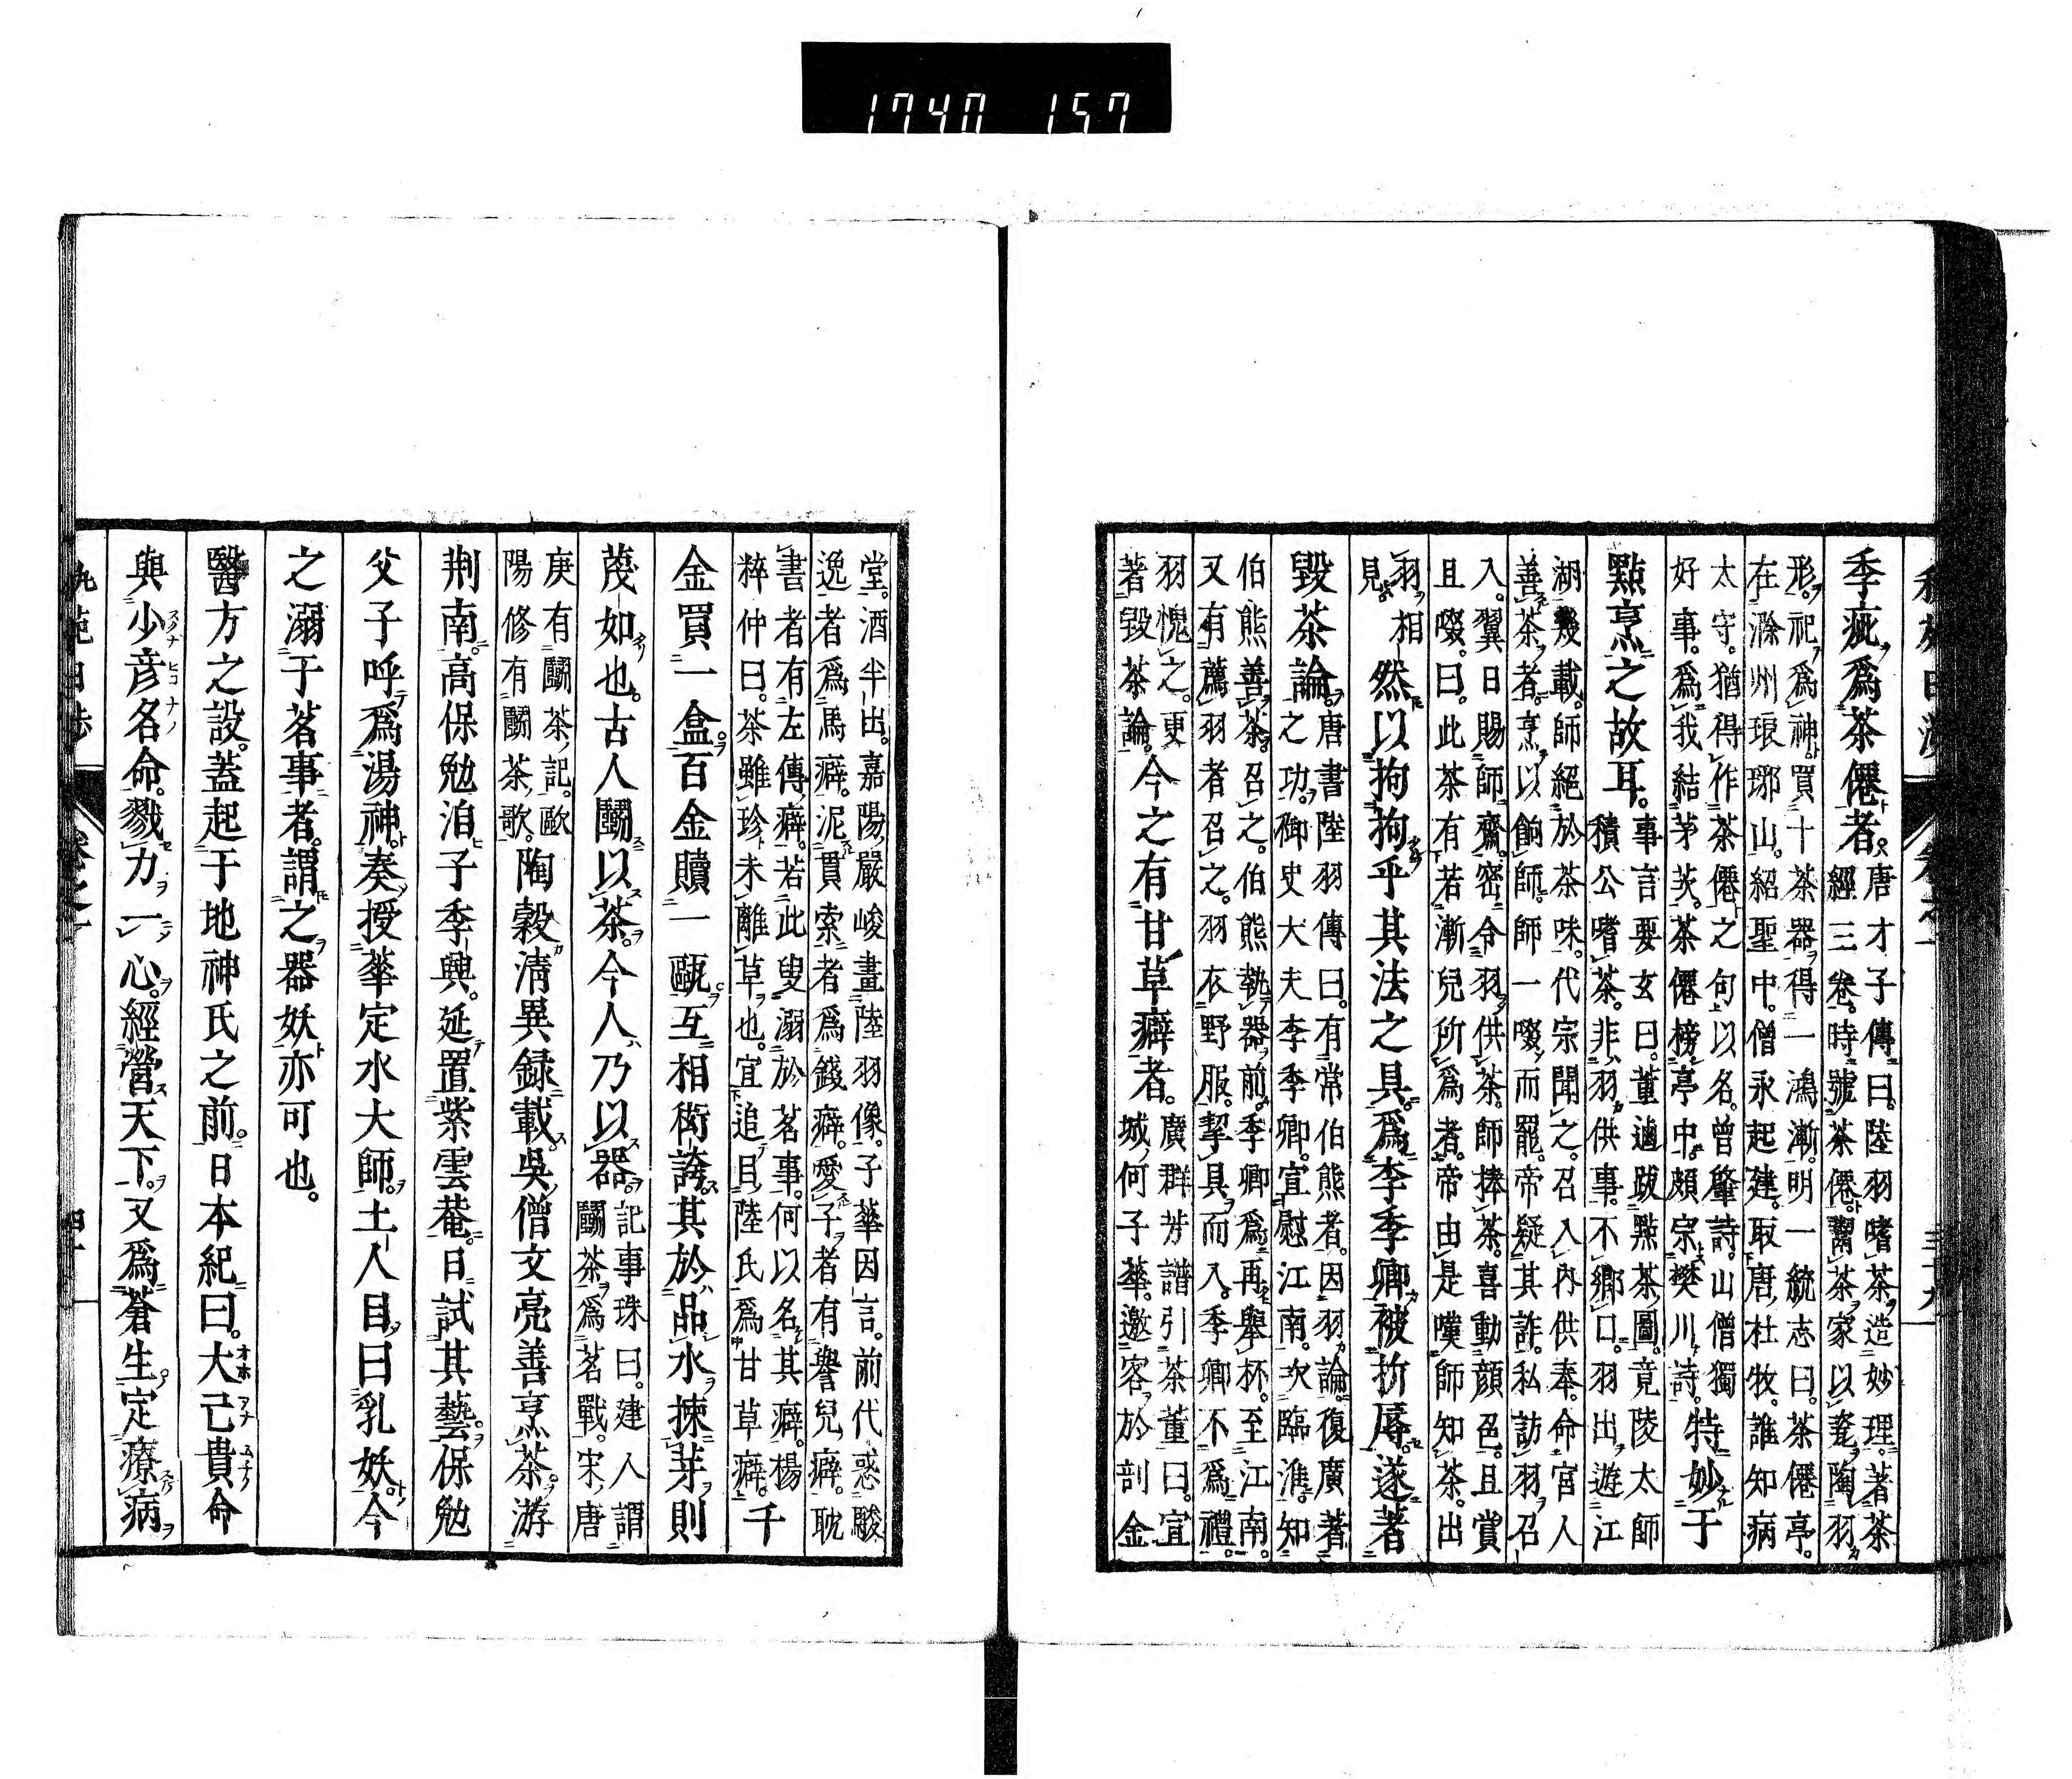 1740 157
季疵爲茶僊者唐才子傳曰陸羽嗜茶造妙理著茶
經三卷時號茶僊鬻茶家以瓷陶羽
形祀爲神買十茶器得一鴻漸明一統志曰茶僊亭
在滁州琅琊山紹聖中僧永起建取唐杜牧誰知病
太守猶得作茶僊之句以名曾肇詩山僧獨
好事爲我結茅茨茶僊榜亭中頗宗樊川詩特妙于
點烹之故耳事言要玄曰董逌跋點茶圖竟陵太師
積公嗜茶非羽供事不鄉口羽出遊江
湖幾載師絕於茶味代宗聞之召入內供奉命宮人
善茶者烹以餉師師一啜而罷帝疑其詐私訪羽召
入翼日賜師齋密令羽供茶師捧茶喜動顏色且賞
且啜曰此茶有若漸兒所爲者帝由是嘆師知茶出
羽相
見然以拘拘乎其法之具爲李季卿被折辱遂著
毀茶論唐書陸羽傳曰有常伯熊者因羽論復廣著
之功御史大夫李季卿宣慰江南次臨淮知
伯熊善茶召之伯熊執器前季卿爲再舉杯至江南
又有薦羽者召之羽衣野服挈具而入季卿不爲禮
羽愧之更
著毀茶論今之有甘草癖者廣群芳譜引茶董曰宜
城何子華邀客於剖金
堂酒半出嘉陽嚴峻畫陸羽像子華因言前代惑駿
逸者爲馬癖泥貫索者爲錢癖愛子者有譽兒癖耽
書者有左傳癖若此叟溺於茗事何以名其癖楊
粹仲曰茶雖珍未離草也宜追目陸氏爲甘草癖千
金買一盒百金贖一甌互相衒誇其於品水揀芽則
蔑如也古人鬭以茶今人乃以器記事珠曰建人謂
鬭茶爲茗戰宋唐
庚有鬭茶記歐
陽修有鬭茶歌陶穀清異録載吳僧文亮善烹茶游
荆南高保勉洎子季興延置紫雲菴日試其藝保勉
父子呼爲湯神奏授華定水大師土人目曰乳妖今
之溺于茗事者謂之器妖亦可也
醫方之設蓋起于地神氏之前日本紀曰大己貴命
與少彦名命戮力一心經營天下又爲蒼生定療病